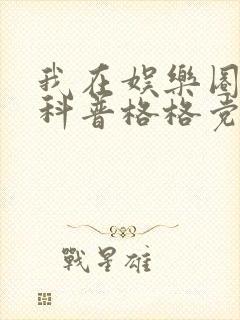 我在娛樂圈
科普格格党
戰星雄